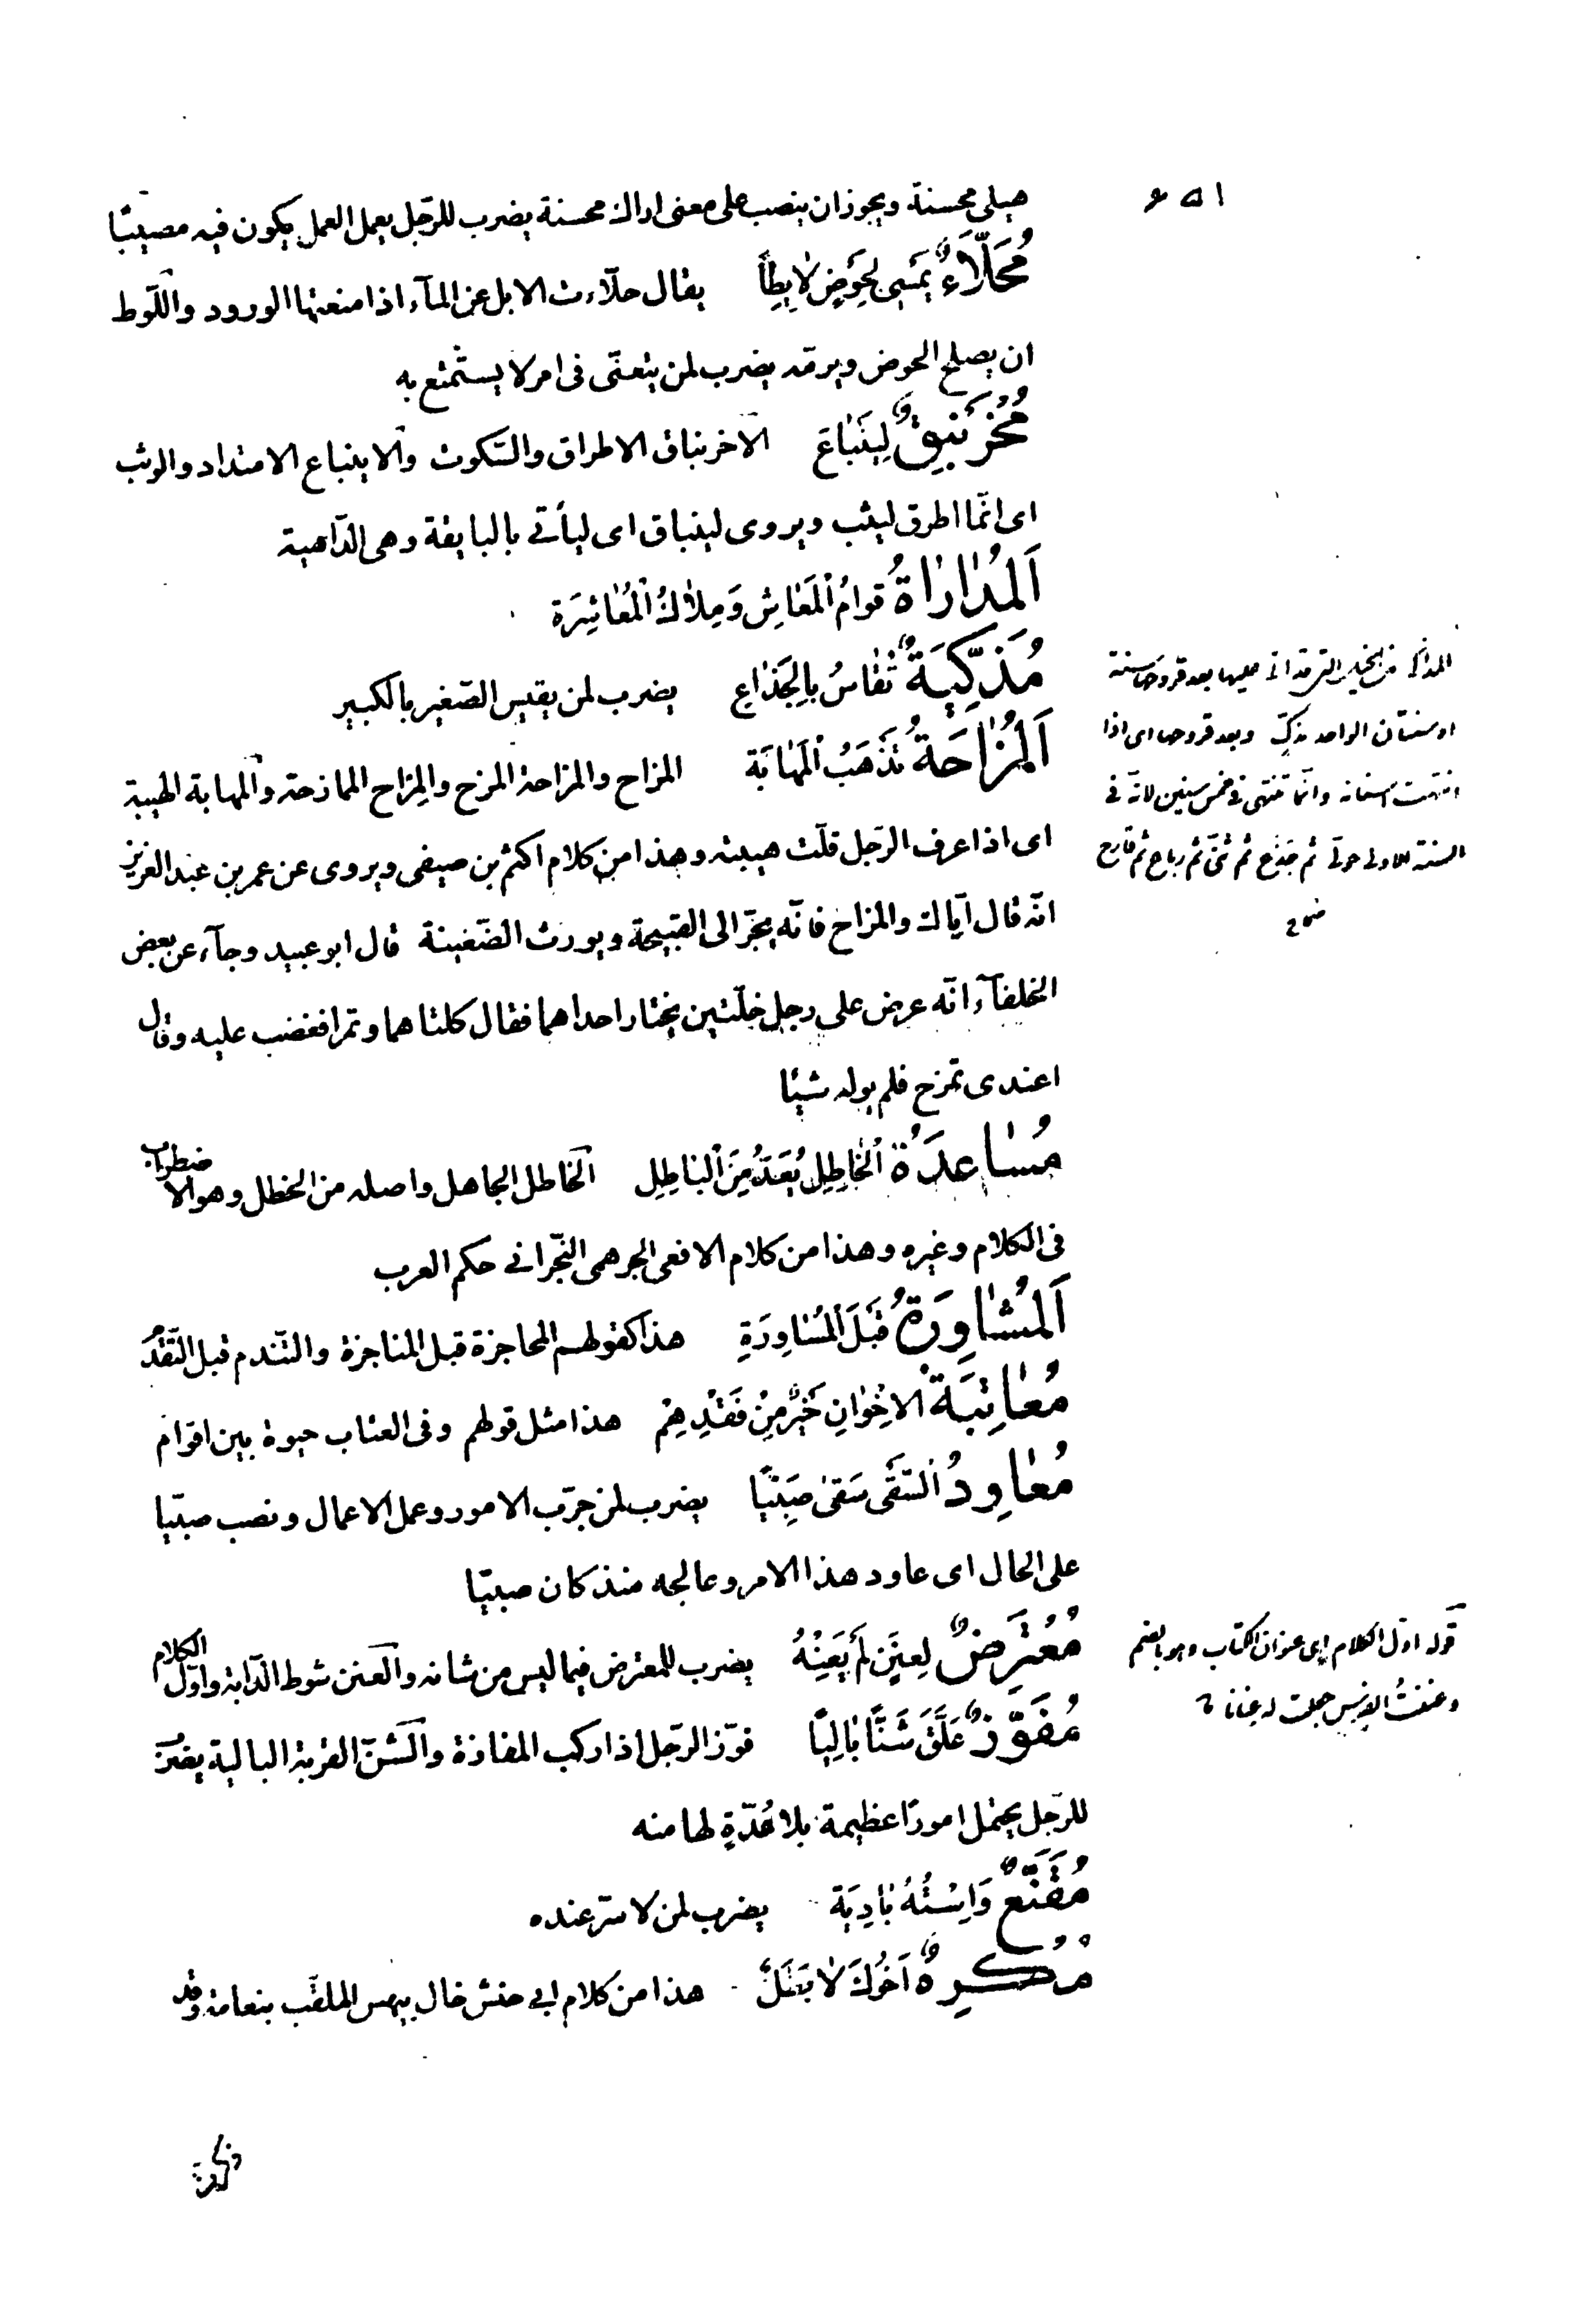 ٦٥١
هيلى محسنة ويجوز ان ينصب على معنى اراك محسنة يضرب للرّجل يعمل العمل يكون فيه مصيبًا
مُحَلَّاءٌ يَمْشِى لِحَوْضٍ لَا يِطًا يقال حلّاءت الابل عن المآء اذا منعتها الورود واللّوط
ان يصلح الحوض ويرمّه يضرب لمن يتعنّى فى امر لا يستمتع به
مُخْرَنْبِقٌ لِيَنْبَاعَ الاخرنباق الاطراق والسّكوت والانبياع الامتداد والوثب
اى انّما اطرق ليثب ويروى لينباق اى ليأتى بالبايقة وهى الدّاهية
اَلْمُدَارَاةُ قوامُ الْمَعَاشِ وَمِلَاكُ الْمُعَاشِرَة
مُذَكِّيَةٌ تُقَاسُ بِالْجِذَاعِ يضرب لمن يقيس الصّغير بالكبير
اَلْمُزَاحَةُ تُذْهَبُ الْمَهَابَة المزاح والمزاحة المزح والمِزاح الممازحة والمهابة الهيبة
اى اذا عرف الرّجل قلّت هيبته وهذا من كلام اكثم بن صيفى ويروى عن عمر بن عبد العزيز
انّه قال ايّاك والمزاح فانّه يجرّ الى القبيحة ويورث الضّغينة قال ابو عبيد وجآء عن بعض
الخلفآء انّه عرض على رجل خلّتين يختار احداهما فقال كلتاهما وتمرا فغضب عليه وقال
اعندى تمزح فلم يوله شيئا
مُسَاعَدَةُ الْخَاطِلِ يُعَدُّ مِنَ الْبَاطِلِ الخاطل الجاهل واصله من الخطل وهو الاضطراب
فى الكلام وغيره وهذا من كلام الافعى الجرهمى النّجرانى حكم العرب
اَلْمُشَاوَرَةُ قَبْلَ الْمُسَاوَرَةِ هذا كقولهم المحاجزة قبل المناجزة والتّندم قبل التّقدّم
مُعَاتِبَةُ الاخْوَانِ خَيْرٌ مِنْ فَقْدِهِمْ هذا مثل قولهم وفى العتاب حيوة بين اقوام
مُعَاوِدُ السَّقْى سَقَى صَبِيًّا يضرب لمن جرّب الامور وعمل الاعمال ونصب صبيّا
على الحال اى عاود هذا الامر وعالجه منذ كان صبيّا
مُعْتَرِضٌ لِعَنَنٍ لَمْ يَعْنِهُ يضرب للمعترض فيما ليس من شانه والعنن شوط الدّابة واوّل الكلام
مُفَوِّزٌ عَلَّقَ شَنًّا بَالِيًا فوّز الرّجل اذا ركب المفازة والشّنّ القربة البالية يضرب
للرّجل يحتمل امورًا عظيمة بلا عُدّةٍ لها منه
مُقَنَّعٌ وَاِسْتُهُ بَادِيَة يضرب لمن لا سرّ عنده
مُكْرَهٌ اَخُوكَ لَا بَطَلٌ هذا من كلام ابى حنش خال بيهس الملقّب بنعامة وقد
المذاكى من الخيل التى قد اتى عليها بعد قروحها سنة
او سنتان الواحد مذكٍّ وبعد قروحها اى اذا
انتهت اسنانه وانّما تنتهى فى خمس سنين لانّه فى
السنة الاولى حولىّ ثم جذع ثم ثنىّ ثم رباع ثم قارح
قوله اوّل الكلام اى عنوان الكتاب وهو بالضم
وعننت الفرس جعلت له عنانا